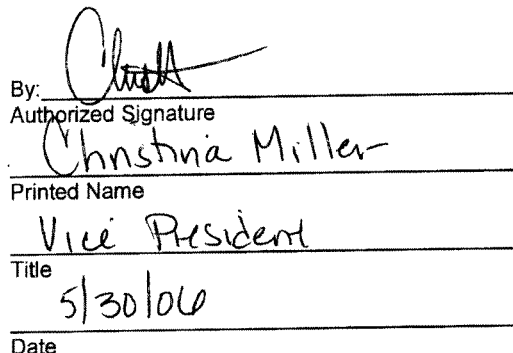 By:
Authorized Signature
Christina Miller
Printed Name
Vice President
Title
5/30/06
Date